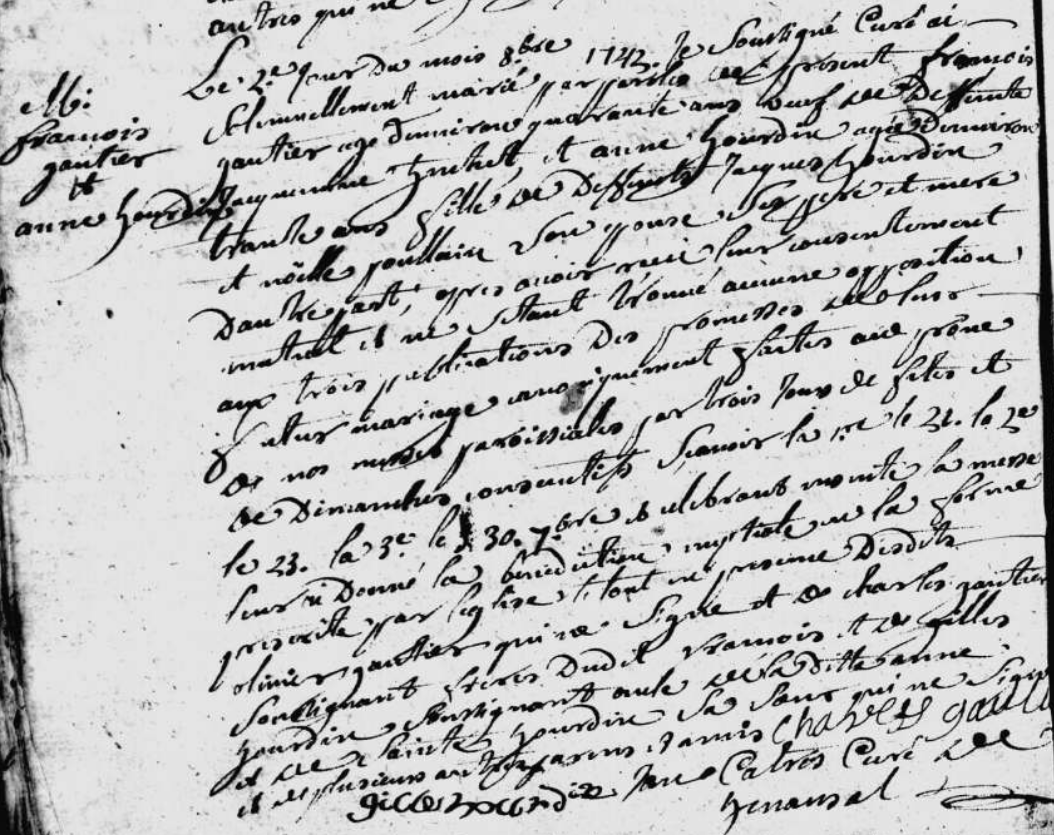 autres qui ne
Le 2e jour du mois 8bre 1742. Je Soussigné Curé ai
M:
françois
gautier
et
anne hourdin
Solemnellement marié par parolles de présent françois
gautier agé denviron quarante ans veuf de Deffunte
Jacquemine et anne hourdin agée Denviron
trante ans fille de Deffunts Jacques hourdin
et noille poullain Son epouse Ses pere et mere
Dautre part, apres avoir receu leur consentement
mutuel et ne Sétant trouvé aucune opposition
aux trois publications Des promesses de leur
futur mariage canoniquement faites au prône
de nos messes paroissiales par trois Jours de fêtes et
de Dimanches consecutifs Sçavoir la 1re le 21. la 2e
le 23. la 3e le 30. 7bre et celebrant ensuite la messe
leur ai Donné la benediction nuptiale en la forme
prescrite par leglise le tout en presence Desdits
olivier gautier qui ne Signe et de charles gautier
Soussignant freres Dudit françois et de gilles
hourdin Soussignant oncle de laditte anne
et de hourdin Sa Sœur qui ne Signe
et de plusieurs autres parens et amis Charles gautier
gilles hourdin Jan Catros Curé de
henansal